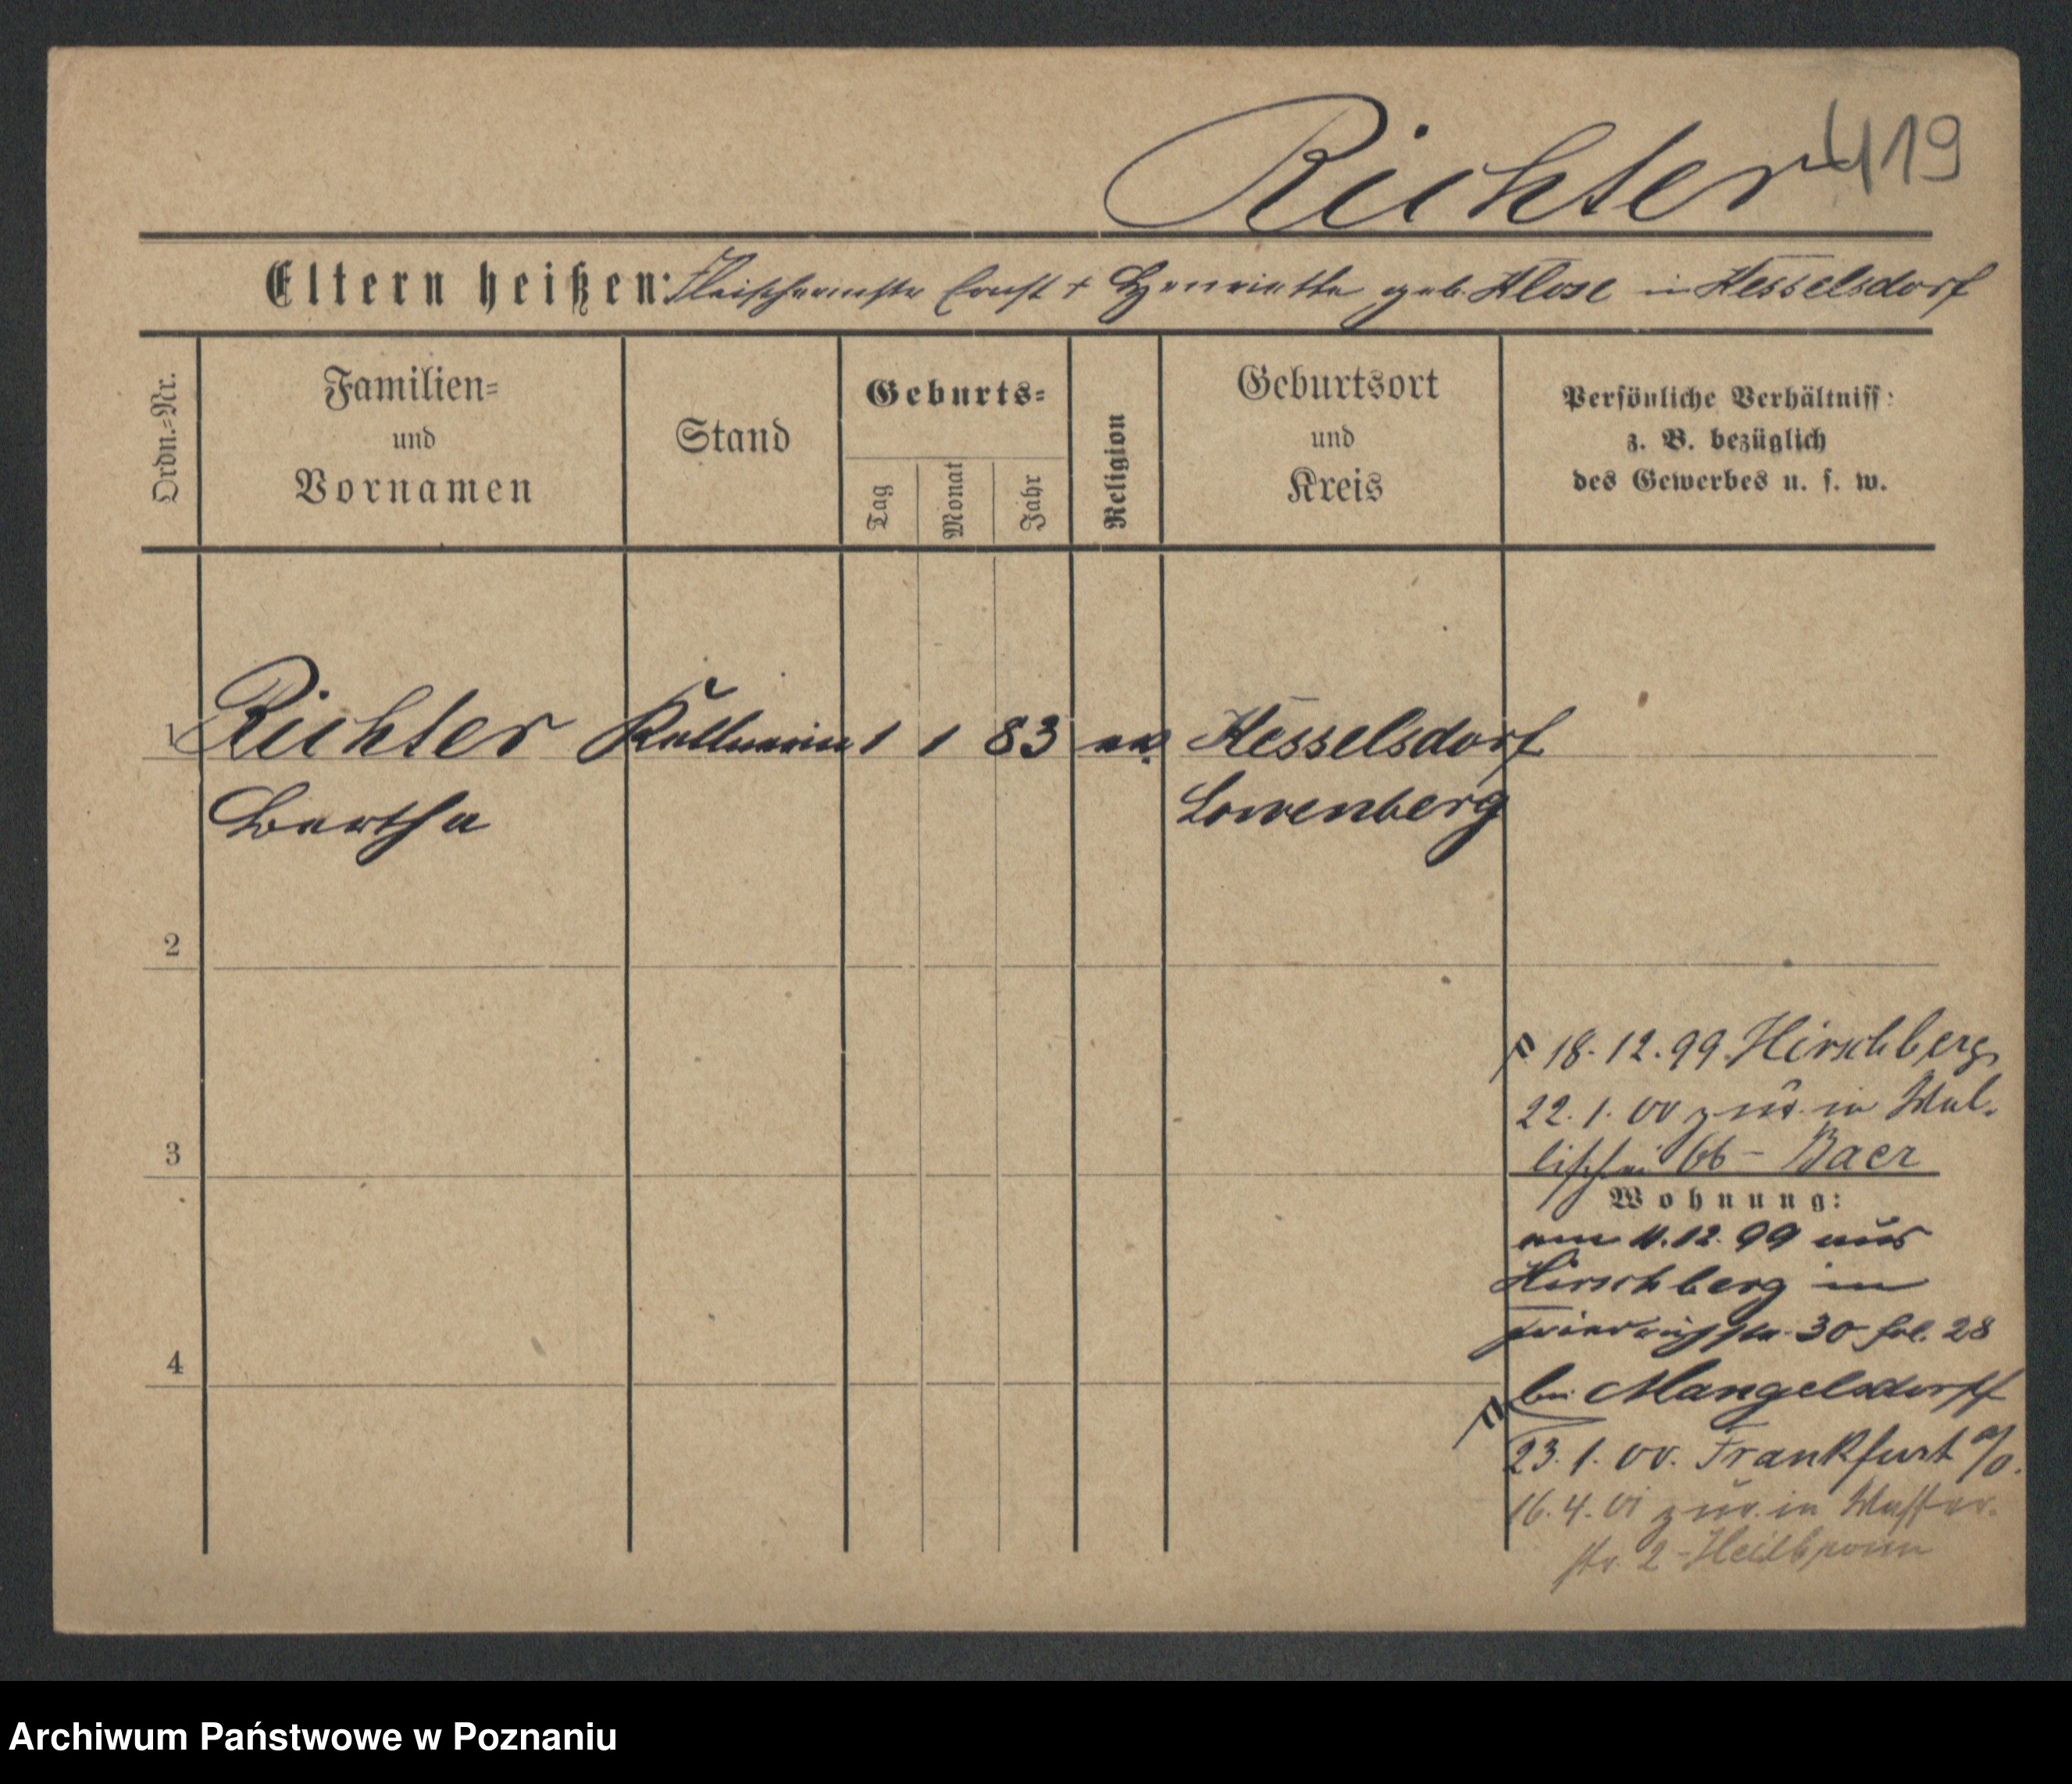 Richter
419
Eltern heißen: Fleischermstr Ernst + Henriette geb. Klose in Kesselsdorf
Ordn.=Nr.
Familien=
und
Vornamen
Stand
Geburts=
Tag
Monat
Jahr
Religion
Geburtsort
und
Kreis
Persönliche Verhältniss:
z. B. bezüglich
des Gewerbes u. s. w.
1 Richter Kellnerin 1 1 83 ev. Kesselsdorf
Bertha Lowenberg
2
18.12.99 Hirschberg
22.1.00 zur. in Wal-
3 lischei 66 – Baer
Wohnung:
am 11.12.99 aus
Hirschberg in
30 fol. 28
4
bei Mangelsdorff
23.1.00. Frankfurt a/O.
16.4.01 zur. in Wasser-
str. 2 - Heilbronn
Archiwum Państwowe w Poznaniu